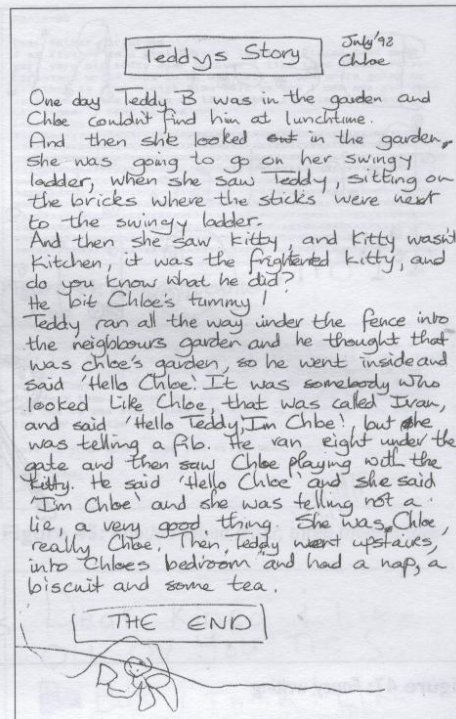 Teddys Story
July '92
Chloe
One day Teddy B was in the garden and
Chloe couldn't find him at lunchtime.
And then she looked out in the garden,
she was going to go on her swingy
ladder, when she saw Teddy, sitting on
the bricks where the sticks were next
to the swingy ladder.
And then she saw kitty, and Kitty wasn't
Kitchen, it was the frightened kitty, and
do you know what he did?
He bit Chloe's tummy!
Teddy ran all the way under the fence into
the neighbours garden and he thought that
was chloe's garden, so he went inside and
said 'Hello Chloe'. It was somebody who
looked Like Chloe, that was called Ivan,
and said 'Hello Teddy, I'm Chloe', but she
was telling a fib. He ran right under the
gate and then saw Chloe playing with the
kitty. He said 'Hello Chloe' and she said
'I'm Chloe' and she was telling not a
lie, a very good thing. She was Chloe,
really Chloe. Then, Teddy went upstairs,
into Chloes bedroom and had a nap, a
biscuit and some tea.
THE END